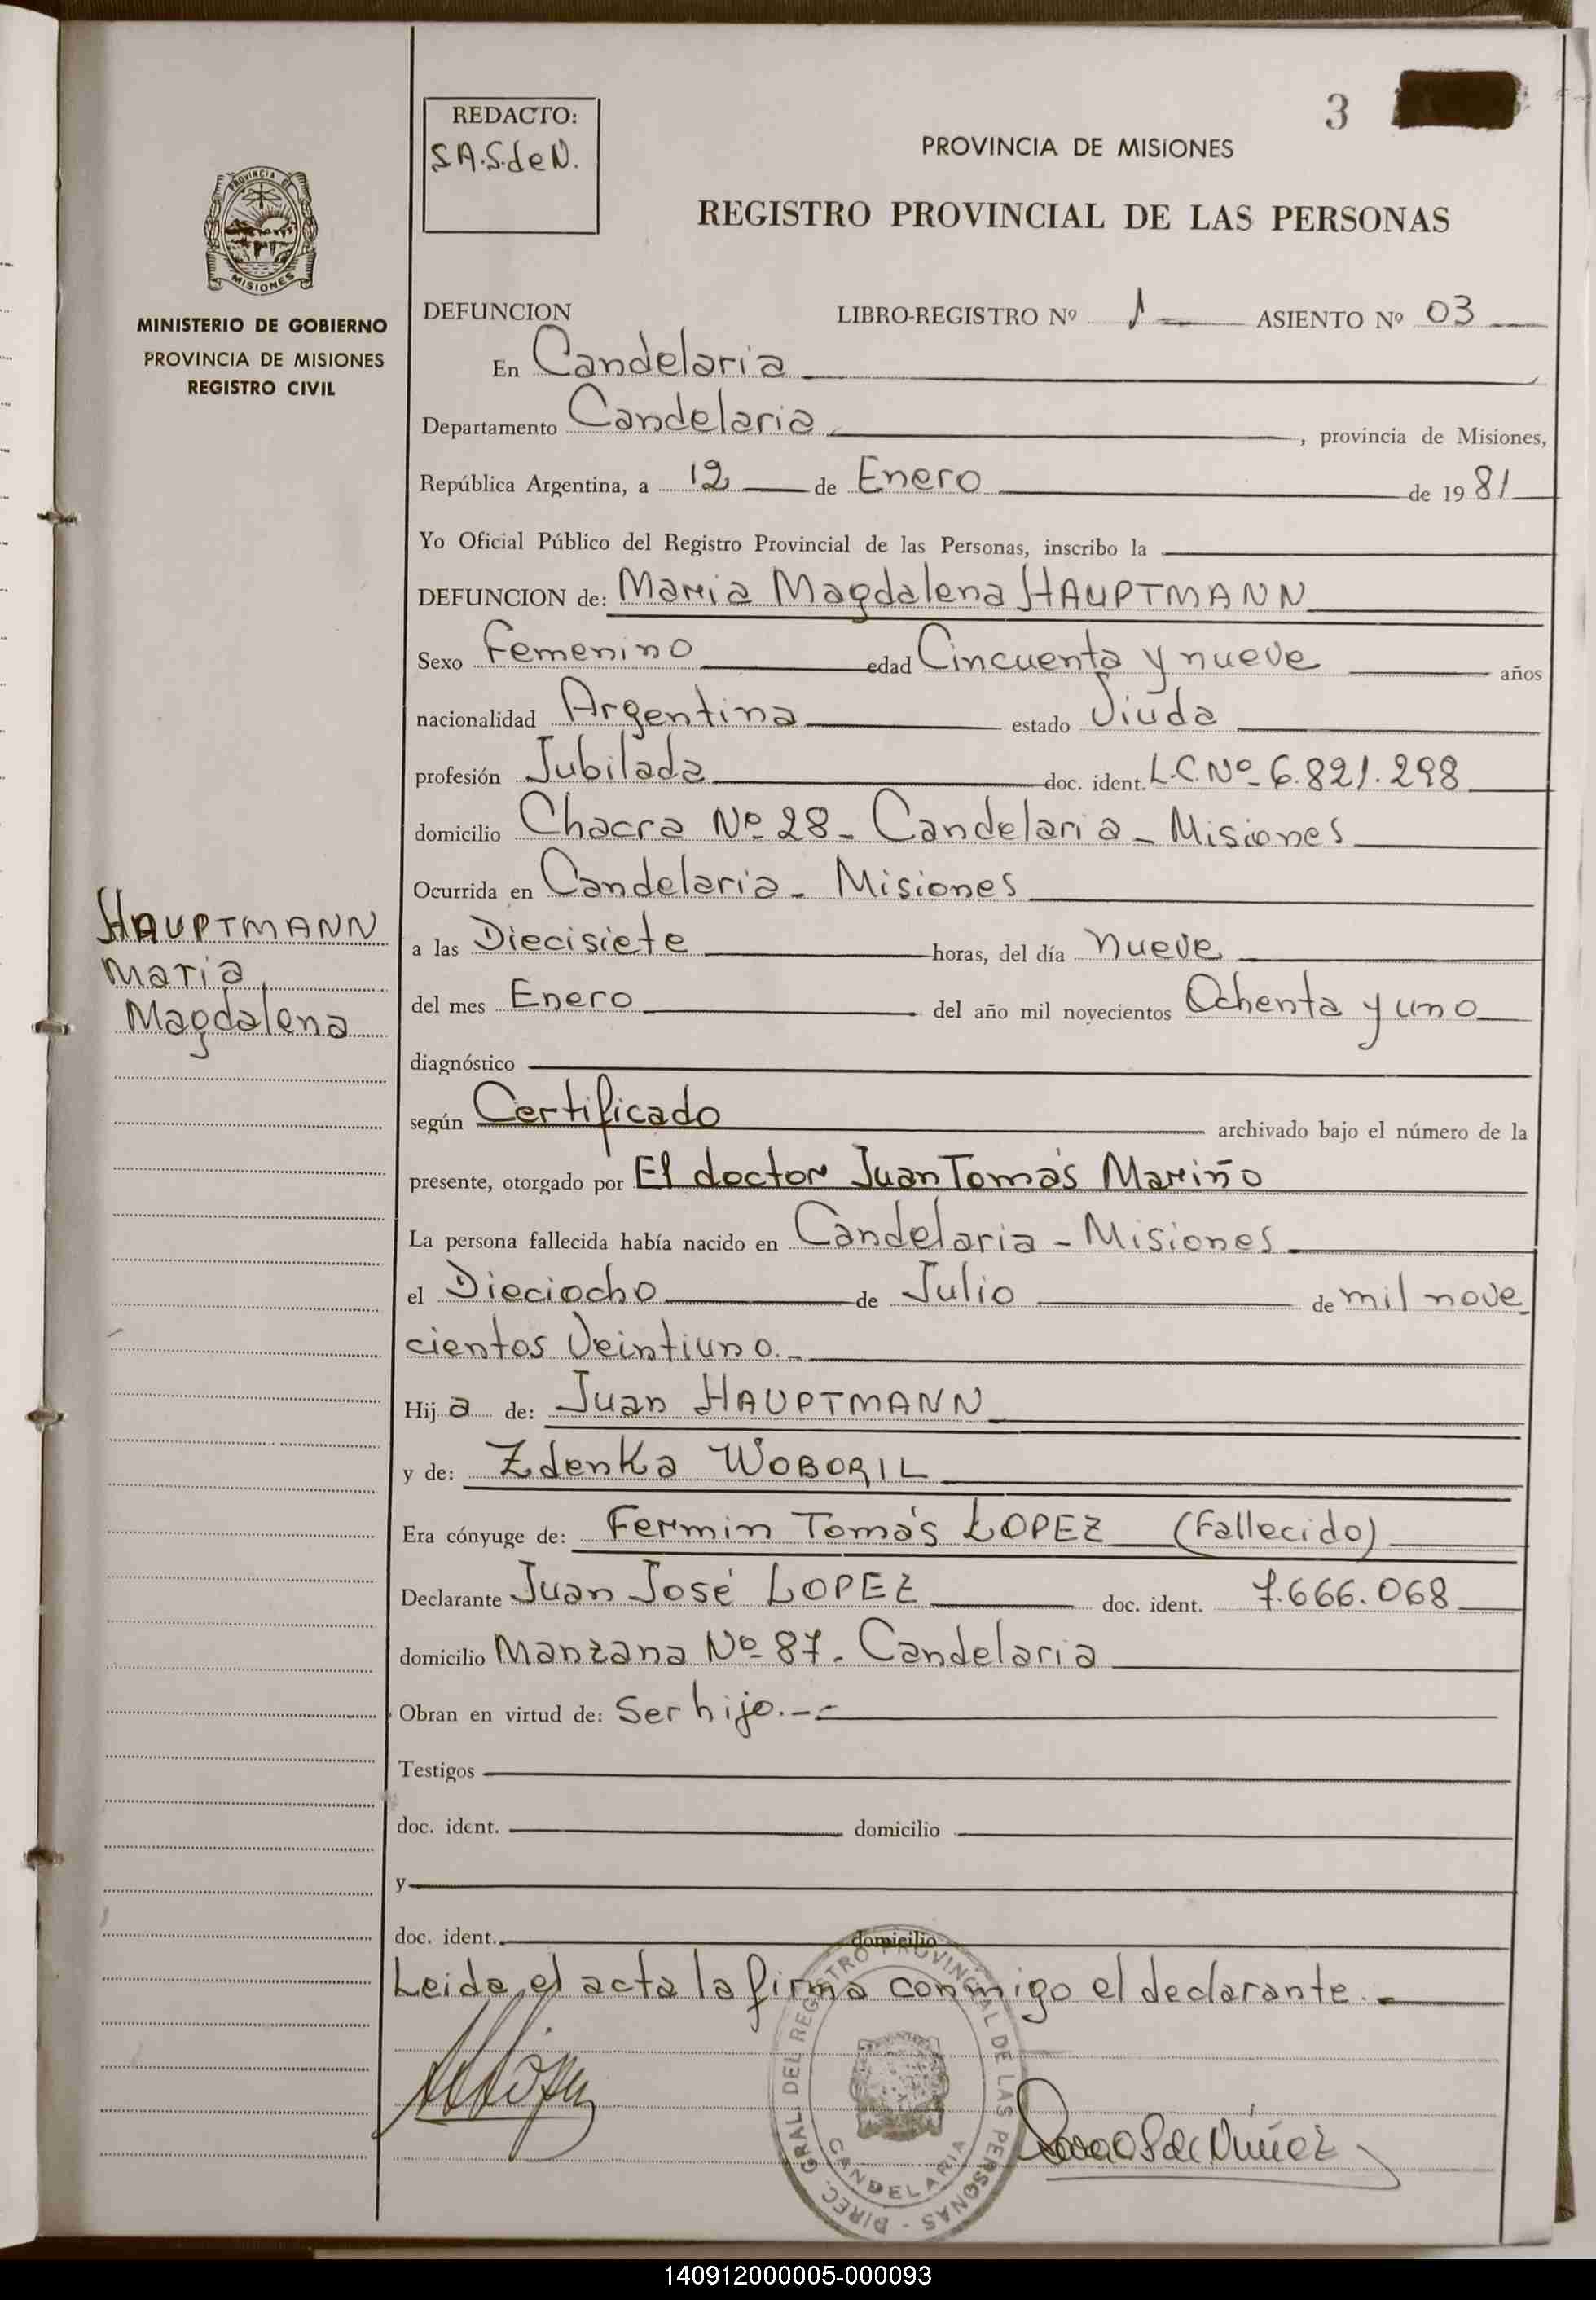 3
REDACTO:
S.A.S.deN.
PROVINCIA DE MISIONES
REGISTRO PROVINCIAL DE LAS PERSONAS
PROVINCIA DE
MISIONES
MINISTERIO DE GOBIERNO
PROVINCIA DE MISIONES
REGISTRO CIVIL
DEFUNCION LIBRO-REGISTRO Nº 1 ASIENTO Nº 03
En Candelaria
Departamento Candelaria, provincia de Misiones,
República Argentina, a 12 de Enero de 1981
Yo Oficial Público del Registro Provincial de las Personas, inscribo la
DEFUNCION de: Maria Magdalena HAUPTMANN
Sexo Femenino edad Cincuenta y nueve años
nacionalidad Argentina estado Viuda
profesión Jubilada doc. ident. L.C.Nº 6.821.298
domicilio Chacra Nº 28 - Candelaria - Misiones
Ocurrida en Candelaria - Misiones
HAUPTMANN
Maria
Magdalena
a las Diecisiete horas, del día nueve
del mes Enero del año mil novecientos Ochenta y uno
diagnóstico
según Certificado archivado bajo el número de la
presente, otorgado por El doctor Juan Tomás Mariño
La persona fallecida había nacido en Candelaria - Misiones
el Dieciocho de Julio de mil nove
cientos Veintiuno.-
Hija de: Juan HAUPTMANN
y de: Zdenka WOBORIL
Era cónyuge de: Fermin Tomás LOPEZ (Fallecido)
Declarante Juan José LOPEZ doc. ident. 7.666.068
domicilio Manzana Nº 87 - Candelaria
Obran en virtud de: Ser hijo.--
Testigos
doc. ident. domicilio
y
doc. ident. domicilio
Leida el acta la firma conmigo el declarante.-
DIREC. GRAL. DEL REGISTRO PROVINCIAL DE LAS PERSONAS -
CANDELARIA
S de Núñez
140912000005-000093